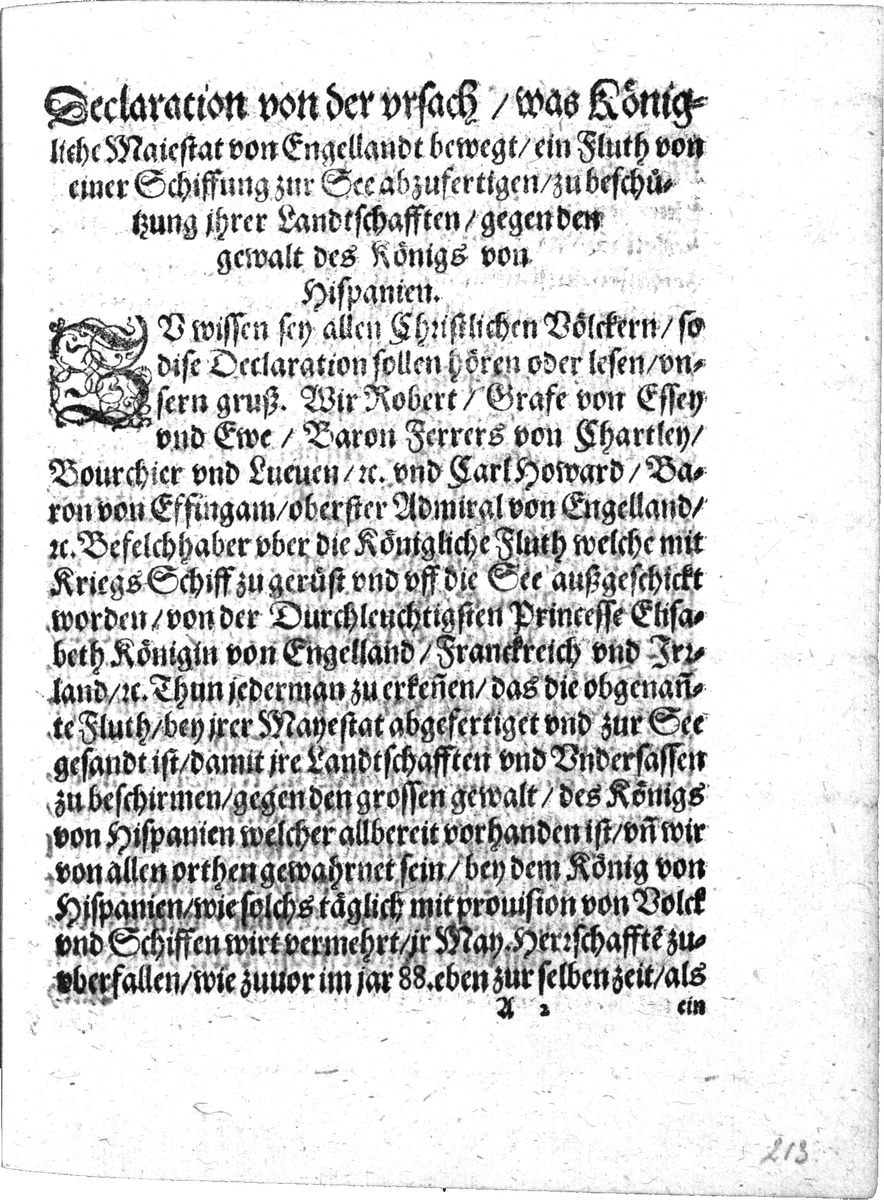 Declaration von der vrsach / was König-
liche Maiestat von Engellandt bewegt / ein Fluth von
einer Schiffung zur See abzufertigen / zu beschü-
tzung jhrer Landtschafften / gegen den
gewalt des Königs von
Hispanien.
ZV wissen sey allen Christlichen Völckern / so
dise Declaration sollen hören oder lesen / vn-
sern gruß. Wir Robert / Grafe von Essey
vnd Ewe / Baron Ferrers von Chartley /
Bourchier vnd Lueuen / ꝛc. vnd Carl Howard / Ba-
ron von Effingam / oberster Admiral von Engelland /
ꝛc. Befelchhaber vber die Königliche Fluth welche mit
Kriegs Schiff zu gerüst vnd vff die See außgeschickt
worden / von der Durchleuchtigsten Princesse Elisa-
beth Königin von Engelland / Franckreich vnd Irr-
land / ꝛc. Thun jederman zu erkeñen / das die obgenañ-
te Fluth / bey jrer Mayestat abgefertiget vnd zur See
gesandt ist / damit jre Landtschafften vnd Vndersassen
zu beschirmen / gegen den grossen gewalt / des Königs
von Hispanien welcher allbereit vorhanden ist / vñ wir
von allen orthen gewahrnet sein / bey dem König von
Hispanien / wie solchs täglich mit prouision von Volck
vnd Schiffen wirt vermehrt / jr May. Herrschafftẽ zu-
vberfallen / wie zuuor im jar 88. eben zur selben zeit / als
A 2 ein
213